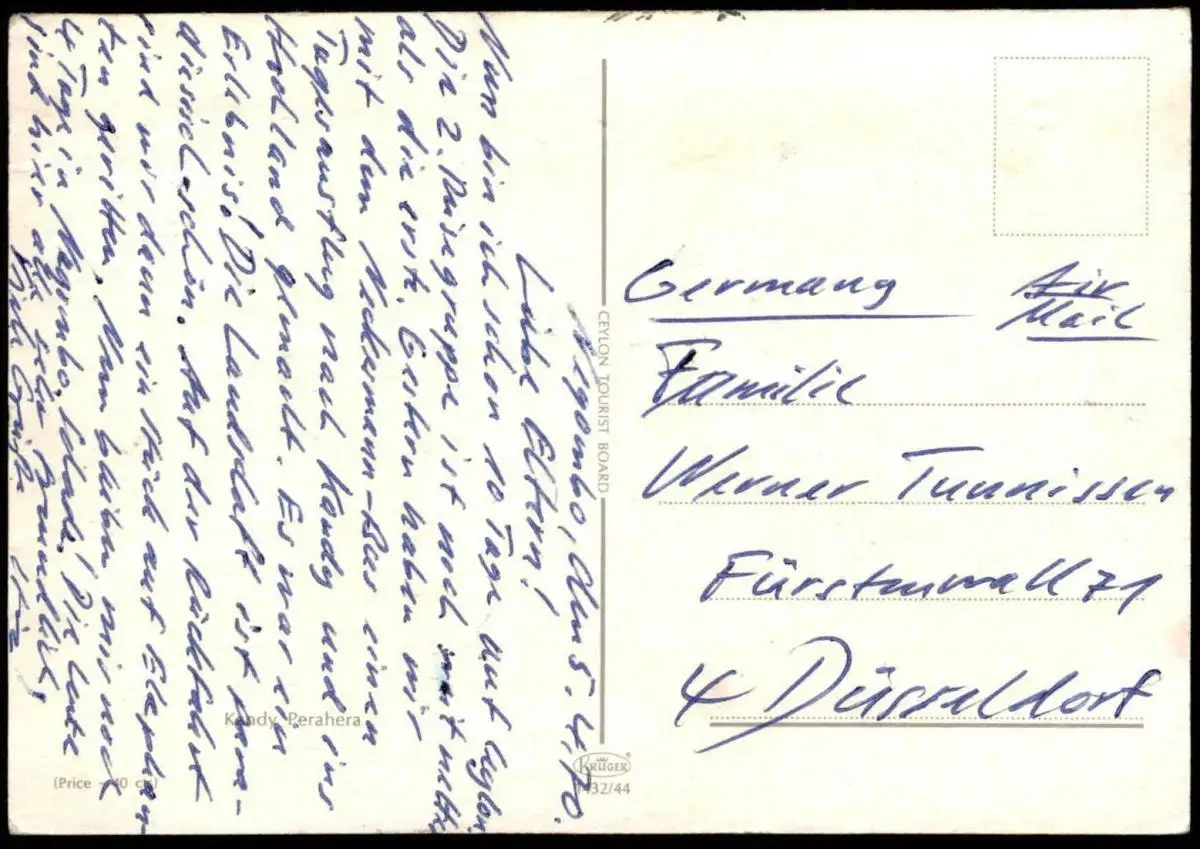 Negombo, den 5.4.70.
Liebe Eltern!
Nun bin ich schon 10 Tage auf Ceylon.
Die 2. Reisegruppe ist noch netter
als die erste. Gestern haben wir
mit dem Neckermann-Bus einen
Tagesausflug nach Kandy und ins
Hochland gemacht. Es war ein
Erlebnis! Die Landschaft ist para-
diesisch schön. Auf der Rückfahrt
sind wir dann ein Stück auf Elephan
ten geritten. Nun bleiben mir noch
4 Tage in Negombo. Schade! Die Leute
sind hier alle sehr freundlich.
Viele Grüße
CEYLON TOURIST BOARD
KRÜGER
1432/44
Kandy Perahera
(Price - 40 cts)
Germany
Air
Mail
Familie
Werner Tunnissen
Fürstenwall 71
4 Düsseldorf